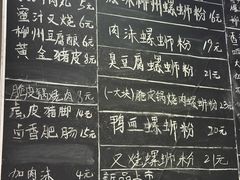 蜜汁叉烧 6元
柳州豆腐酿 6元
黄金猪皮 8元
脆皮锅烧肉
虎皮猪脚 14元
卤香肥肠 15元
加肉沫 4元
柳州螺蛳粉 16元
肉沫螺蛳粉 19元
臭豆腐螺蛳粉
(一大块)脆皮锅烧肉螺蛳粉 23元
鸭血螺蛳粉 20元
螺蛳粉 21元